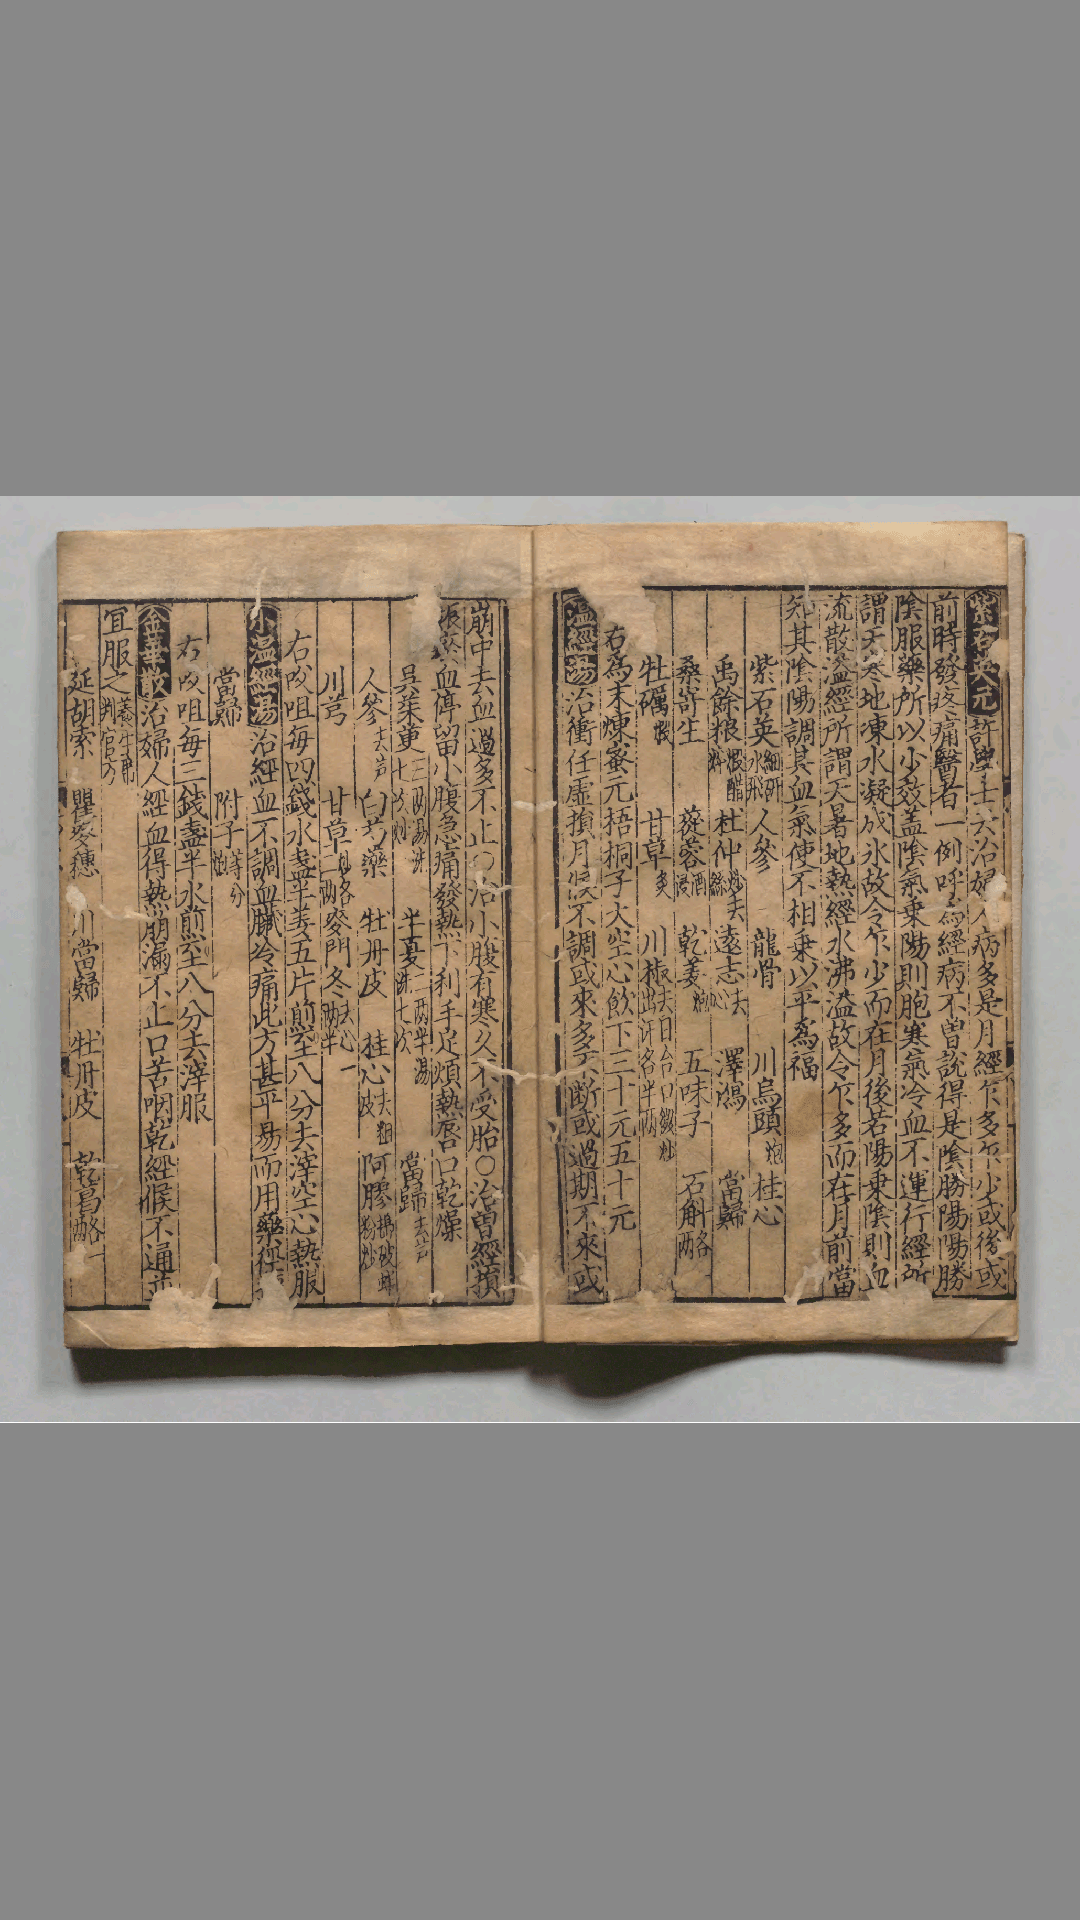 紫石英元許學士云治婦人病多是月經乍多乍少或後或
前時發疼痛醫者一例呼爲經病不曾說得是陰勝陽陽勝
陰服藥所以少效蓋陰氣乗陽則胞寒氣冷血不運行經所
謂天寒地凍水凝成氷故令乍少而在月後若陽乗陰則血
流散溢經所謂天暑地熱經水沸溢故令乍多而在月前當
知其陰陽調其血氣使不相乗以平爲福
紫石英細研水飛 人參 龍骨 川烏頭炮 桂心
禹餘粮煆醋 杜仲炒去絲 遠志去心 澤瀉 當歸
桑寄生 蓯蓉酒浸 乾姜炮 五味子 石斛各 兩
牡礪煆 甘草炙 川椒去目合口微炒出汗各半兩
右為末煉蜜元梧桐子大空心飲下三十元五十元
温經湯治衝任虛損月候不調或來多不断或過期不來或
崩中去血過多不止○治小腹有寒久不受胎○治曽經損
血停留小腹急痛發熱下利手足煩熱唇口乾燥
吳茱萸三兩湯洗七次炒 半夏二兩半湯洗七次 當歸去芦
人參去芦 白芍藥 牡丹皮 桂心去粗皮 阿膠搗破 炒
川芎 甘草各二兩 麥門冬去心一兩半
右㕮咀每四錢水盞半姜五片煎至八分去滓空心熱服
小温經湯治經血不調血臟冷痛此方甚平易而用藥徑
當歸 附子等分炮
右㕮咀每三錢盞半水煎至八分去滓服
金華散治婦人經血得熱崩漏不止口苦咽乾經候不通並
宜服之養生判官方
延胡索 瞿麥穗 川當歸 牡丹皮 乾葛各一兩